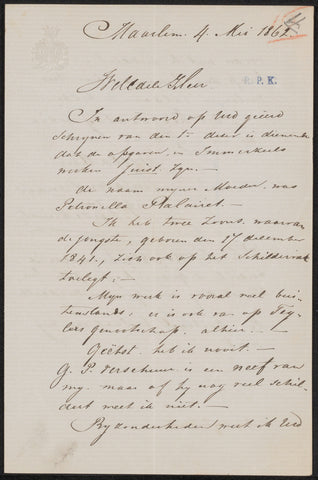 Haarlem. 4. Mei 1862.
R. P. K.
WelEdele Heer
In antwoord op Ued geëerd
schrijven van den 1e dezer is dienende
dat de opgaven in Immerzeels
werken juist zyn.
de naam myner Moeder was
Petronella Palairet.
Ik heb twee zoons, waarvan
de jongste, geboren den 17 december
1841, zich ook op het Schildervak
toelegt. —
Myn werk is vooral veel bui-
tenslands; er is ook van op Tey-
lers genootschap, alhier. —
Geëtst heb ik nooit. —
G. P. Verschuur is een neef van
my. maar of hy nog veel schil-
dert weet ik niet. —
Byzonderheden weet ik Ued